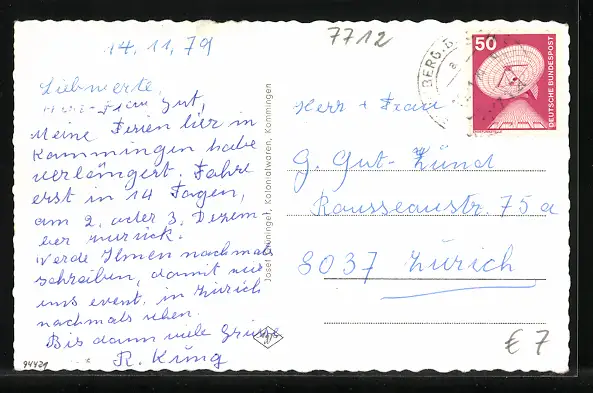 14.11.79
7712
Liebwerte,
Frau Gut,
Meine Ferien hier in
Kommingen habe
verlängert. Fahre
erst in 14 Tagen,
am 2. oder 3. Dezem-
ber zurück.
Werde Ihnen nochmals
schreiben, damit wir
uns event. in Zürich
nochmals sehen.
Bis dann viele Grüsse
R. Küng
94421
Kolonialwaren, Kommingen
Josef
BERG.B
50
DEUTSCHE BUNDESPOST
Herr + Frau
G. Gut-Zünd
Rousseaustr. 75a
8037 Zürich
€ 7